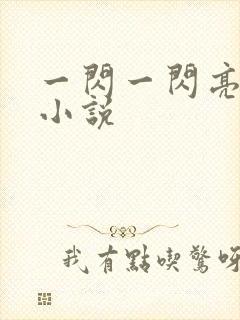 一閃一閃亮
小說
我有點喫驚呀